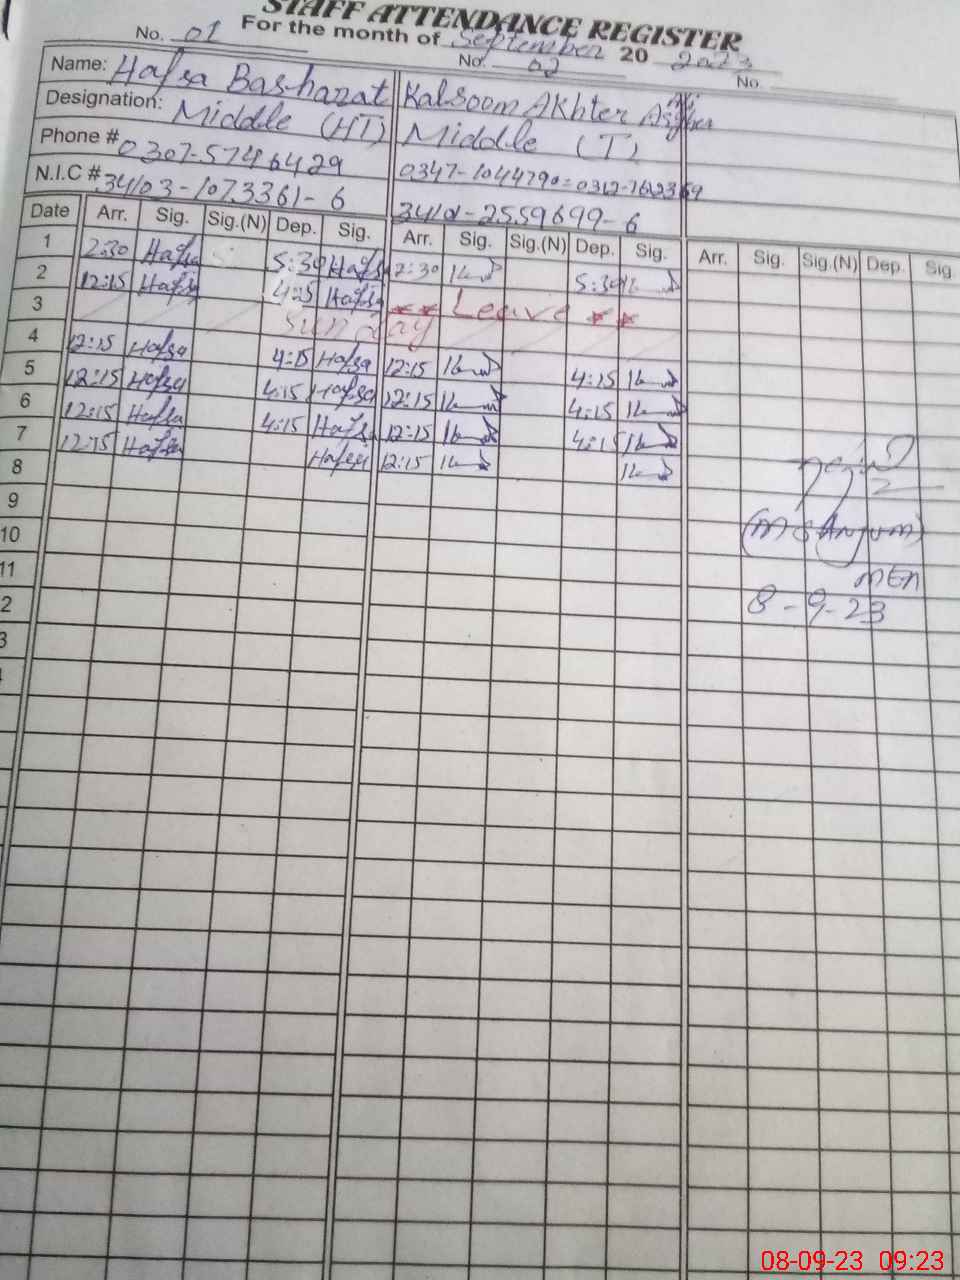 STAFF ATTENDANCE REGISTER
For the month of September 20 2023
No. 01 No. 02 No.
Name: Hafsa Basharat Kalsoom Akhter
Designation: Middle (HT) Middle (T)
Phone # 0307-5746429 0347-1044790=
N.I.C # 34103-1073361-6 34101-2559699-6
Date Arr. Sig. Sig.(N) Dep. Sig. Arr. Sig. Sig.(N) Dep. Sig. Arr. Sig. Sig.(N) Dep. Sig.
1 2:30 Hafsa 5:30 Hafsa 2:30 5:30
2 12:15 Hafsa 4:15 Hafsa ** Leave **
3 Sunday
4 12:15 Hafsa 4:15 Hafsa 12:15 4:15
5 12:15 Hafsa 4:15 Hafsa 12:15 4:15
6 12:15 Hafsa 4:15 Hafsa 12:15 4:15
7 12:15 Hafsa Hafsa 12:15
8
9
10 (M S Anjum)
11 MEA
2 8-9-23
3
08-09-23 09:23